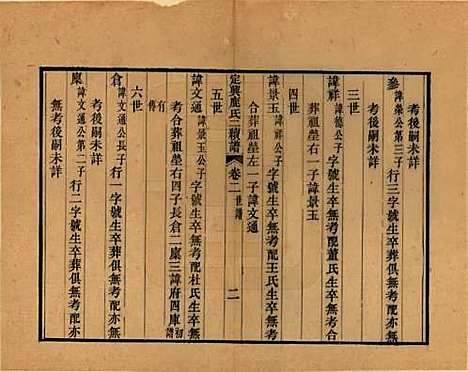 參諱榮公第三子行三字號生卒葬俱無考配亦
無考後嗣未詳
考後嗣未詳
三世
諱祥諱德公子字號生卒無考配董氏生卒無考合
葬祖塋右一子諱景玉
四世
諱景玉諱祥公子字號生卒無考配王氏生卒無考
合葬祖塋左一子諱文通
定興鹿氏二續譜 卷二 世譜 二
五世
諱文通諱景玉公子字號生卒無考配杜氏生卒無
考合葬祖塋右四子長倉二稟三諱府四庫初譜
有傳
六世
倉諱文通公長子行一字號生卒葬俱無考配亦無
考後嗣未詳
稟諱文通公第二子行二字號生卒葬俱無考配亦
無考後嗣未詳